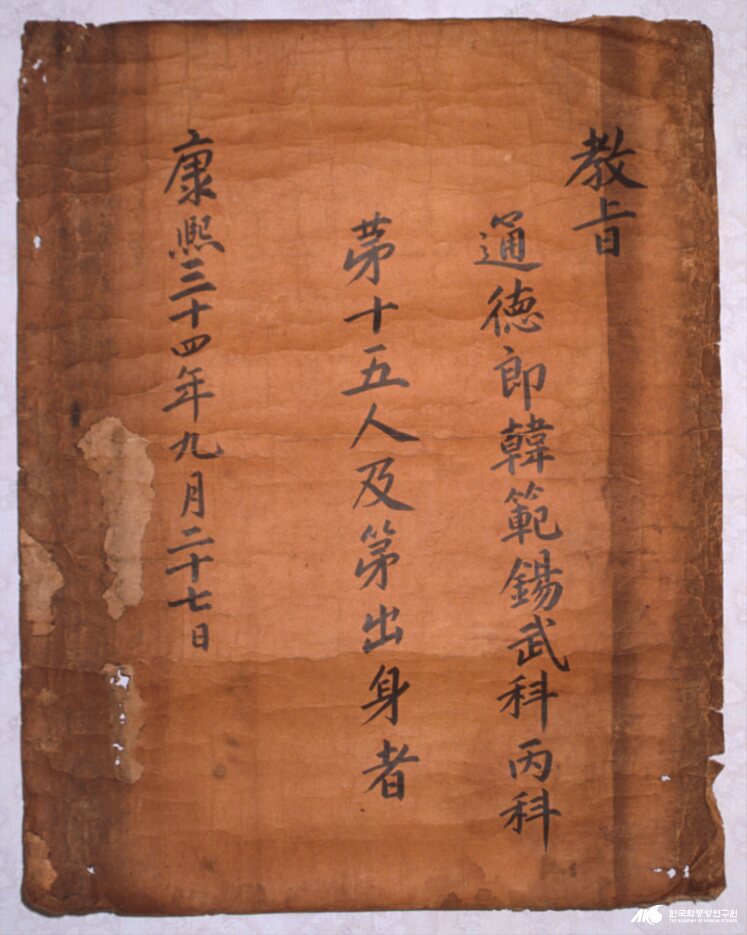 教旨
通德郎韓範錫武科丙科
苐十五人及第出身者
康熙三十四年九月二十七日
AKS 한국학중앙연구원
THE ACADEMY OF KOREAN STUDIES